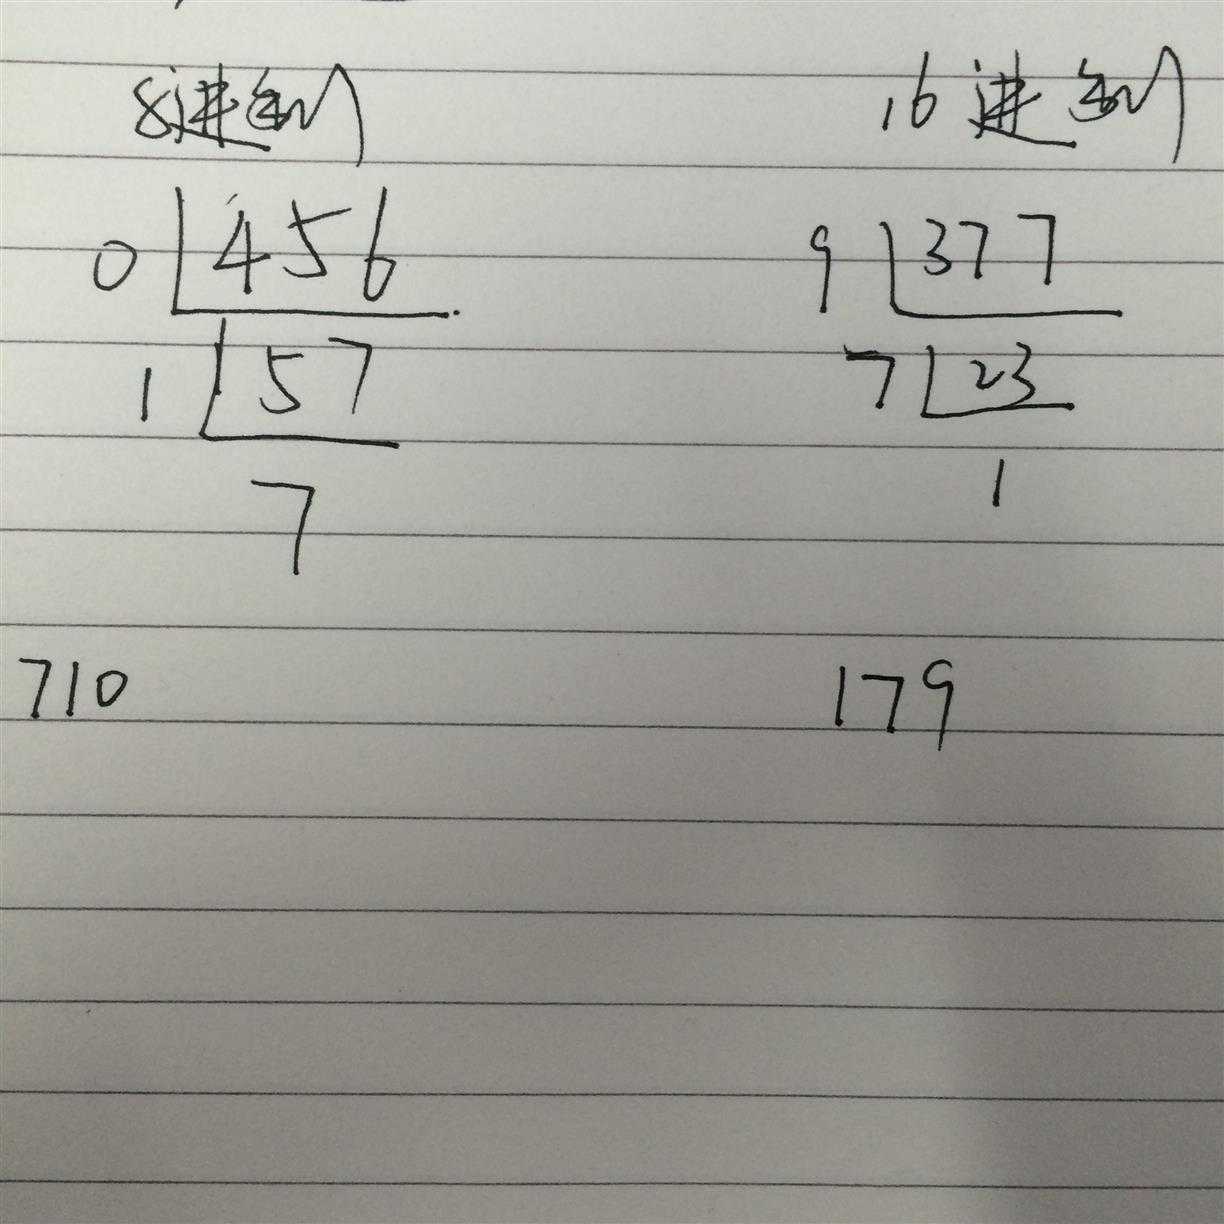 8进制 16进制
0 456 9 377
1 57 7 23
7 1
710 179